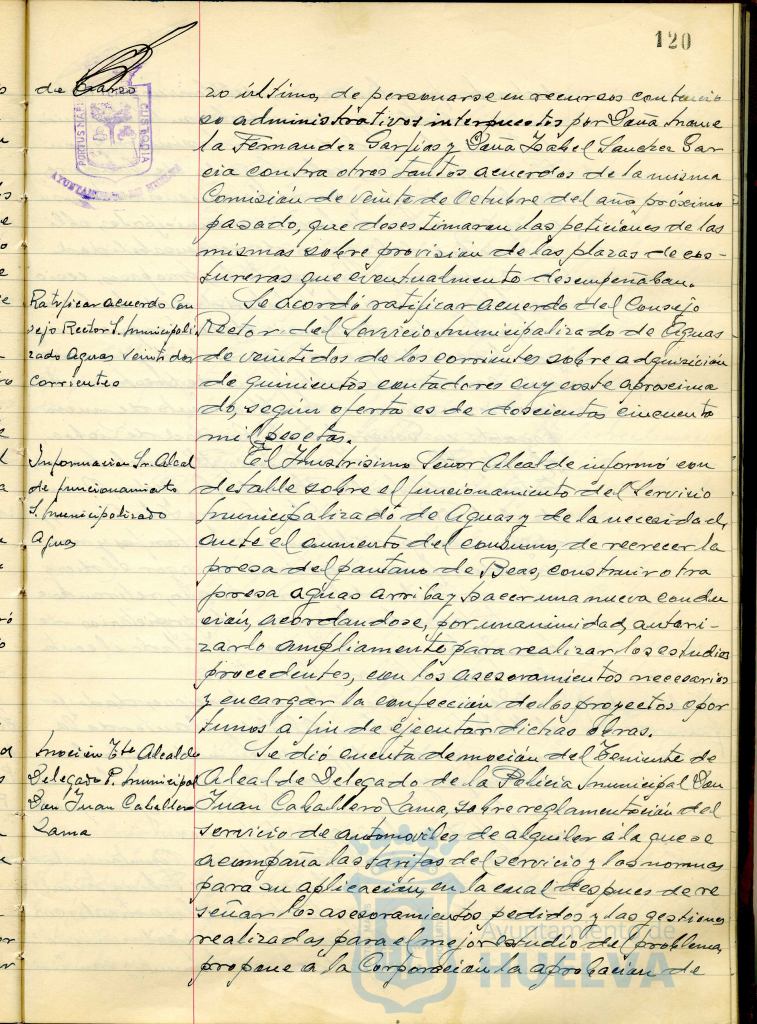 120
de Marzo
PORTUS MARIS
CUSTODIA
AYUNTAMIENTO DE HUELVA
zo último, de personarse en recursos contencio
so administrativos interpuestos por Doña Manue
la Fernandez Garfias y Doña Isabel Sanchez Gar
cia contra otros tantos acuerdos de la misma
Comisión de veinte de Octubre del año próximo
pasado, que desestimaron las peticiones de las
mismas sobre provisión de las plazas de cos-
tureras que eventualmente desempeñaban.
Ratificar acuerdo Con
sejo Rector S. Municipali
zado Aguas veintidos
corrientes
Se acordó ratificar acuerdo del Consejo
Rector del Servicio Municipalizado de Aguas
de veintidos de los corrientes sobre adquisición
de quinientos contadores cuy coste aproxima
do, según oferta es de doscientas cincuenta
mil pesetas.
Informacion Sr. Alcal
de funcionamiento
S. Municipalizado
Aguas
El Ilustrisimo Señor Alcalde informó con
detalle sobre el funcionamiento del Servicio
Municipalizado de Aguas y de la necesidad,
ante el aumento del consumo, de recrecer la
presa del pantano de Beas, construir otra
presa aguas arriba y hacer una nueva condu
ción, acordandose, por unanimidad, autori-
zarlo ampliamente para realizar los estudios
procedentes, con los asesoramientos necesarios
y encargar la confección de los proyectos opor
tunos á fin de ejecutar dichas obras.
Moción Tte Alcalde
Delegado P. Municipal
Don Juan Caballero
Lama
Se dió cuenta de moción del Teniente de
Alcalde Delegado de la Policia Municipal Don
Juan Caballero Lama, sobre reglamentación del
servicio de automoviles de alquiler á la que se
acompaña las tarifas del servicio y las normas
para su aplicación, en la cual despues de re
señar los asesoramientos pedidos y las gestiones
realizadas para el mejor estudio del problema,
propone á la Corporación la aprobación de
Ayuntamiento de
HUELVA